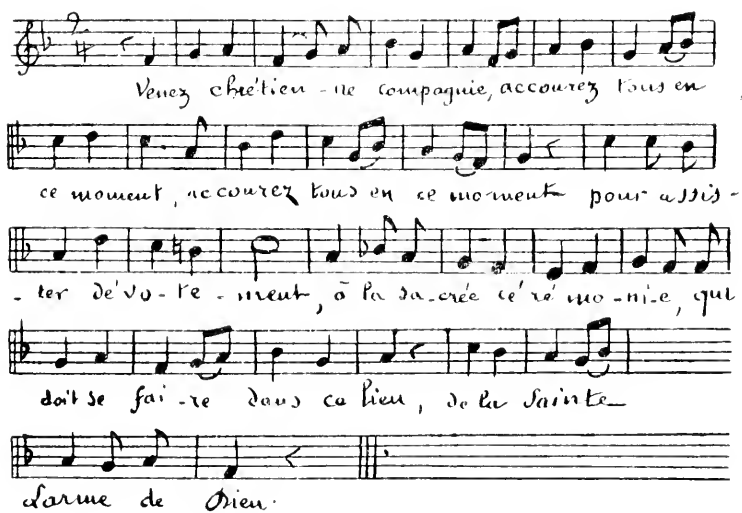 2/4
Venez chrétien-ne compagnie, accourez tous en
ce moment, accourez tous en ce moment pour assis-
-ter dévo-te-ment, à la sa-crée cé ré mo-ni-e, qui
doit se fai-re dans ce lieu, de la Sainte
Larme de Dieu.